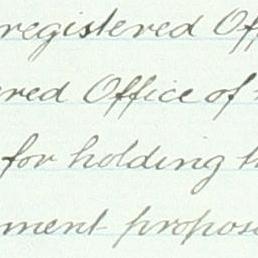 registered Off
ered Office of
for holding th
ment propose